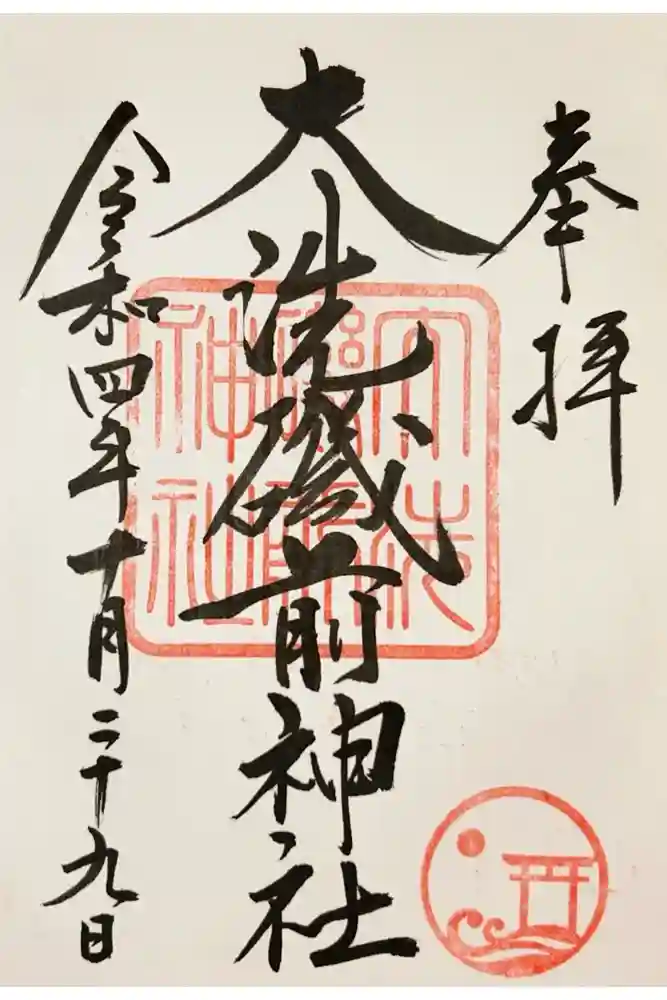 奉拝
大洗磯前神社
大洗磯前神社
令和四年十月二十九日